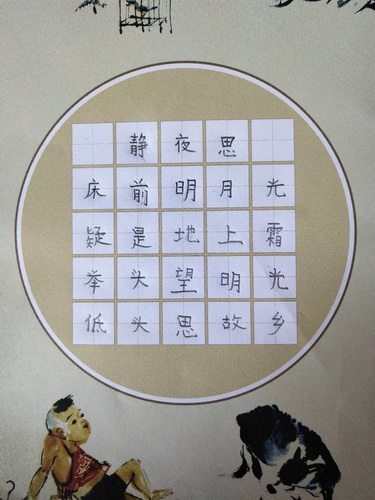 静夜思
床前明月光
疑是地上霜
举头望明光
低头思故乡